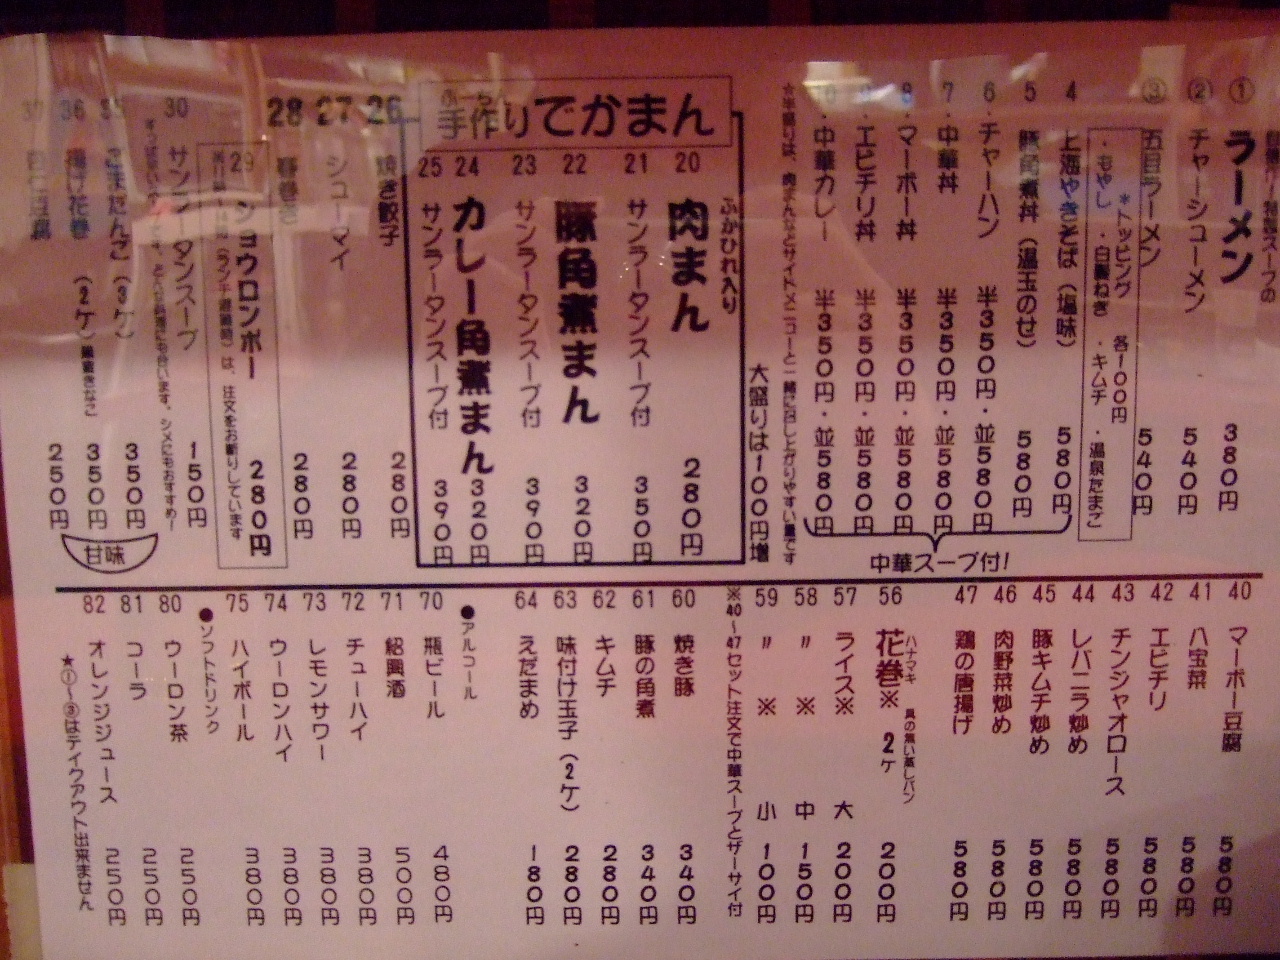 特製スープの
① ラーメン 380円
② チャーシューメン 540円
③ 五目ラーメン 540円
＊トッピング 各100円
・もやし ・白髪ねぎ ・キムチ ・温泉たまご
4 上海やきそば（塩味） 580円
5 豚角煮丼（温玉のせ） 580円
6 チャーハン 半350円・並580円
7 中華丼 半350円・並580円
8 マーボー丼 半350円・並580円
9 エビチリ丼 半350円・並580円
10 中華カレー 半350円・並580円
中華スープ付!
★半盛りは、肉まんなどサイドメニューと一緒に召し上がりやすい量です
大盛りは100円増
手作りでかまん
ふかひれ入り
20 肉まん 280円
21 サンラータンスープ付 350円
22 豚角煮まん 320円
23 サンラータンスープ付 390円
24 カレー角煮まん 320円
25 サンラータンスープ付 390円
26 焼き餃子 280円
27 シューマイ 280円
28 春巻 280円
29 ショウロンポー 280円
（ランチ混雑時）は、注文をお断りしています
30 サンラータンスープ 150円
シメにもおすすめ!
35 ごまだんご（3ケ） 350円
36 揚げ花巻（2ケ）黒蜜きなこ 350円
37 250円
甘味
40 マーボー豆腐 580円
41 八宝菜 580円
42 エビチリ 580円
43 チンジャオロース 580円
44 レバニラ炒め 580円
45 豚キムチ炒め 580円
46 肉野菜炒め 580円
47 鶏の唐揚げ 580円
ハナマキ 具の無い蒸しパン
56 花巻※ 2ケ 200円
57 ライス※ 大 200円
58 〃 ※ 中 150円
59 〃 ※ 小 100円
※40～47セット注文で中華スープとザーサイ付
60 焼き豚 340円
61 豚の角煮 340円
62 キムチ 280円
63 味付け玉子（2ケ） 280円
64 えだまめ 180円
●アルコール
70 瓶ビール 480円
71 紹興酒 500円
72 チューハイ 380円
73 レモンサワー 380円
74 ウーロンハイ 380円
75 ハイボール 380円
●ソフトドリンク
80 ウーロン茶 250円
81 コーラ 250円
82 オレンジジュース 250円
★①～③はテイクアウト出来ません